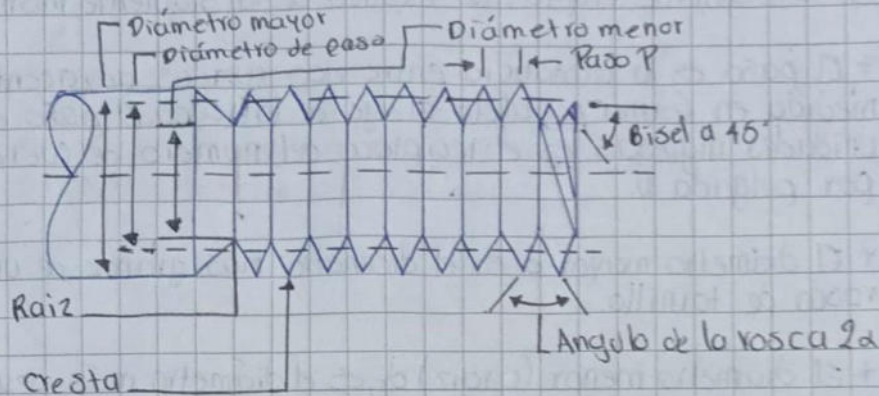 Diámetro mayor
Diámetro de paso
Diámetro menor
Paso P
Bisel a 45°
Raiz
Angulo de la rosca 2α
Cresta